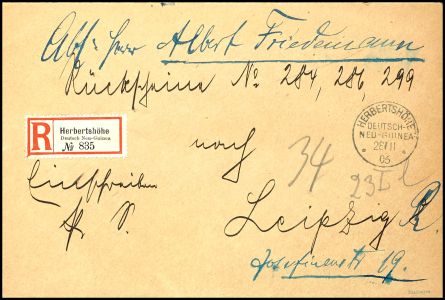 Abs: Herr Albert Friedemann
Rückscheine No 284, 286, 299
R
Herbertshöhe
Deutsch Neu-Guinea
No 835
HERBERTSHÖHE
DEUTSCH-
NEU-GUINEA
05
Einschreiben
nach
34
Leipzig R.
19.